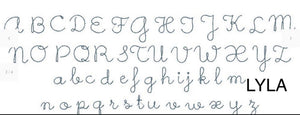 A B C D E F G H I J K L M
N O P Q R S T U V W X Y Z
a b c d e f g h i j k l m LYLA
n o p q r s t u v w x y z